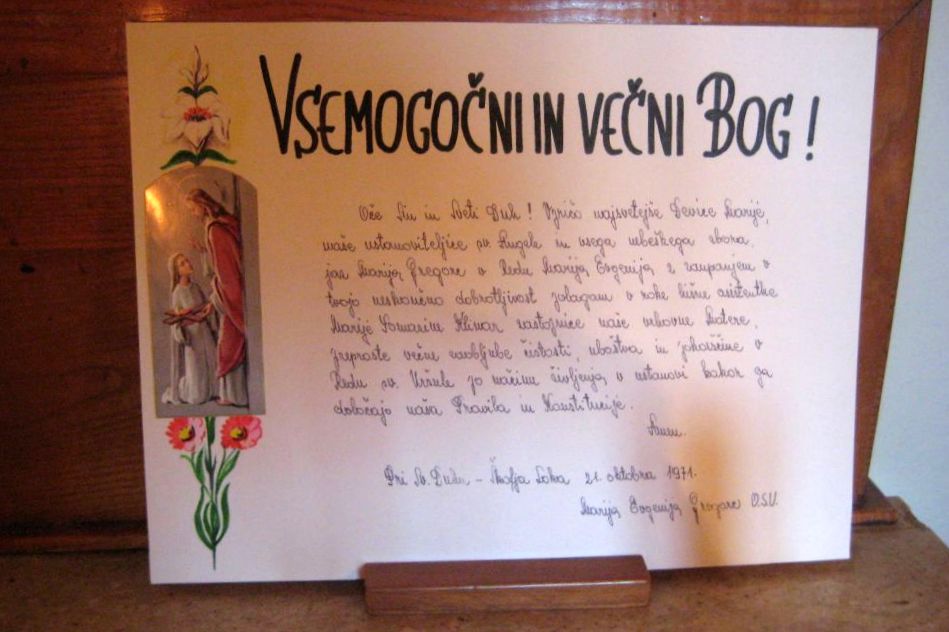 VSEMOGOČNI IN VEČNI BOG!
Oče Sin in Sveti Duh! Vpričo najsvetejše Device Marije,
naše ustanoviteljice sv. Angele in vsega nebeškega zbora.
jaz Marija Gregorc v Redu Marija Evgenija z zaupanjem v
tvojo neskončno dobrotljivost polagam v roke hišne asistentke
Marije Klimar nastojnice naše vrhovne Matere,
preproste večne zaobljube čistosti, uboštva in pokorščine v
Redu sv. Uršule po načinu življenja v ustanovi kakor ga
določajo naša Pravila in Konstitucije.
Amen.
Pri Sv. Duhu - Škofja Loka 21. oktobra 1971.
Marija Evgenija Gregorc O.S.U.